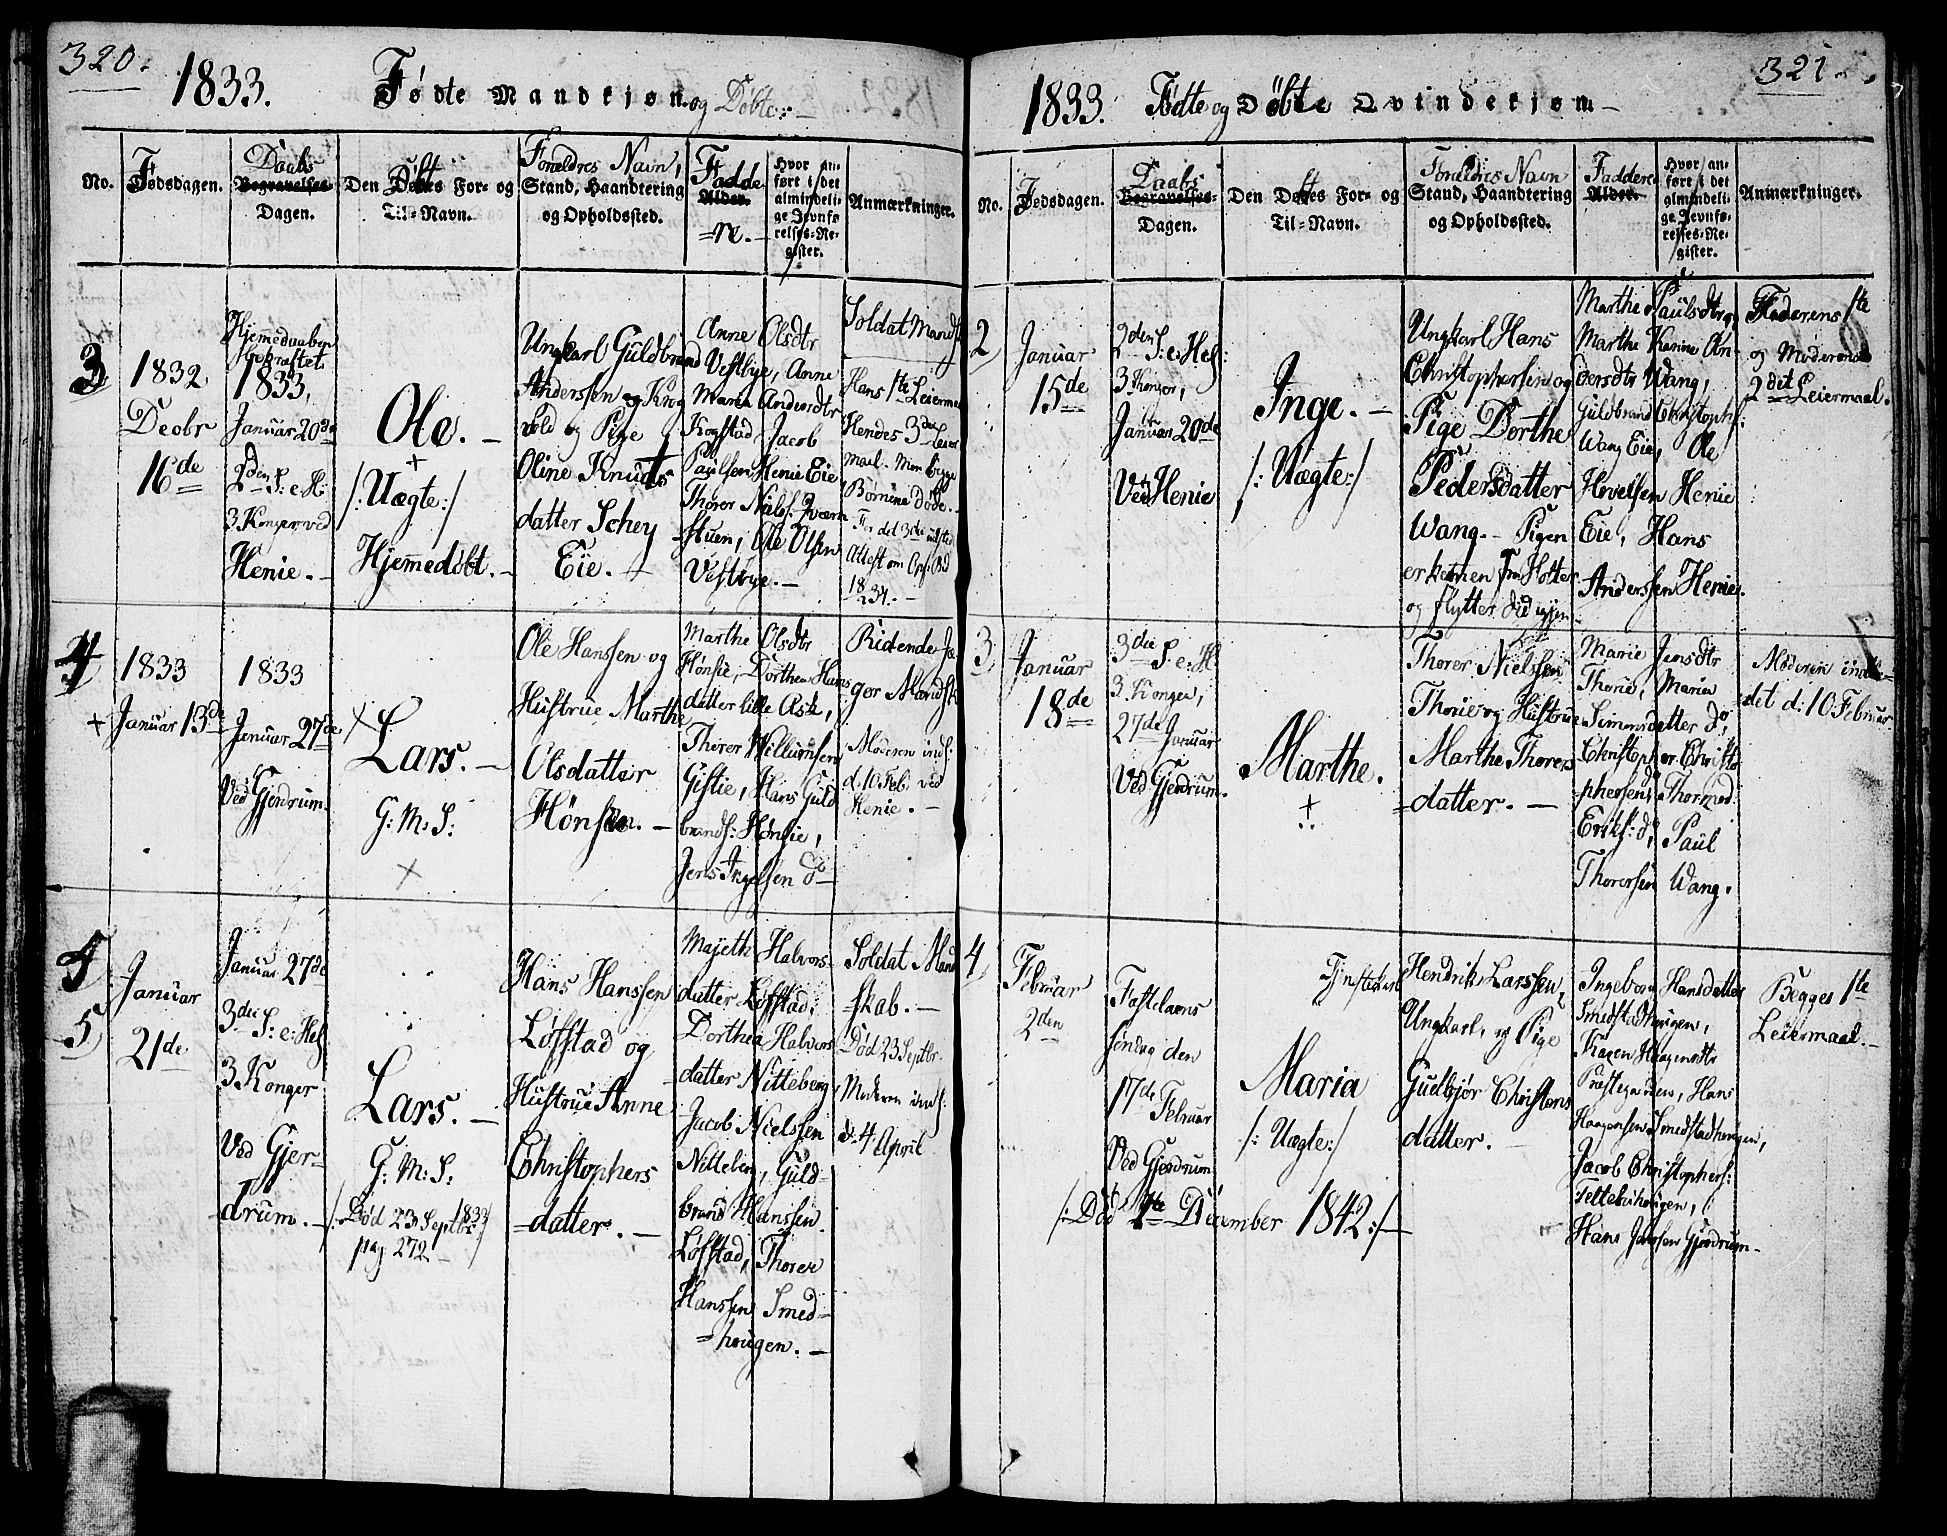 320.
1833.
Fødte Mandkjøn og Døbte.
No.
Fødsdagen.
Daabs
Begravelses-
Dagen.
Den Døbtes For- og
Til-Navn.
Forældres Navn,
Stand, Haandtering
og Opholdssted.
Fadde
Alder.
=re.
Hvor an-
ført i det
almindeli-
ge Jevnfø-
relses-Re-
gister.
Anmærkninger.
3
1832
Decbr
16de
Hjemedaaben
bekræftet
1833,
Januar 20de
2den S: e H:
3. Konger ved
Henie. -
Ole. -
+
/: Uægte :/
Hjemedøbt. -
Ungkarl Guldbrand
Anderssen og Krog
vold og Pige
Oline Knuds
datter Schey
Eie. -
Anne Olsdtr
Vestbye, Anne
Maria Andersdtr
Kogstad, Jacob
Paulsen Henie Eie,
Thorer Niels: Kværn
-stuen, Ole Olsen
Vestbye. -
Soldat Mandsk
Hans 1te Leierm
Hendes 3die Leier
mael. Men begge
Børnene Døde. -
For det 3die
Attest om
1834. -
4
1833
+ Januar 13de
1833
Januar 27de
Ved Gjerdrum.
Lars. -
G: M: S:
Ole Hanssen og
Hustrue Marthe
Olsdatter
Hønsie. -
Marthe Olsdtr
Hønsie, Dorthea Hans
datter lille Ask,
Thorer Willumsen
Gistie, Hans Guld
brands: Hønsie,
Jens Ingelsen do
Ridende Jæ
ger Mandsk
Moderen inds:
d. 10 Feb. ved
Henie. -
5
5
Januar
21de
Januar 27de
3die S: e: Hel
3. Konger
Ved Gjer-
drum. -
Lars. -
G: M: S:
/: Død 23 Septbr 1833 :/
pag 272 -
Hans Hanssen
Løfstad og
Hustrue Anne
Christophers
=datter. -
Majeth Halvors-
datter Løfstad,
Dorthea Halvors
datter Nitteberg,
Jacob Nielssen
Nitteberg, Guld-
brand Hanssen
Løfstad, Thorer
Hanssen Smed-
=hougen. -
Soldat Mand
skab. -
Død 23 Septbr.
Moderen inds:
d. 4 April
321.
1833.
Fødte og Døbte Qvindekjøn. -
No.
Fødsdagen.
Daabs
Begravelses-
Dagen.
Den Døbtes For- og
Til-Navn.
Forældres Navn
Stand, Haandtering
og Opholdssted.
Faddere
Alder.
Hvor an-
ført i det
almindeli-
ge Jevnfø-
relses-Re-
gister.
Anmærkninger.
2
Januar
15de
2den S: e: Hel:
3 Konger,
Januar 20de
Ved Henie
Inge. -
/: Uægte :/
Ungkarl Hans
Christophersen og
Pige Dorthe
Pedersdatter
Wang. - Pigen
er kommen fra Holter
og flytter did igjen.
Marthe Paulsdtr og
Marthe Karine An-
dersdtr Wang,
Guldbrand Christoph:
Wang Eie, Ole
Hovelsen Henie
Eie, Hans
Anderssen Henie.
Faderens 1te
og Moderens
2det Leiermaal.
3
Januar
18de
3die S: e: H
3. Konger,
27de Januar
Ved Gjerdrum.
Marthe.
+
Thorer Nielssen
Thorie og Hustrue
Marthe Thorers
=datter. -
Marie Jensdtr
Thorie, Maria
Simensdatter do,
Christopher Christo
phersen do, Thormod
Eriks: do, Paul
Thorersen Wang.
Moderen indle-
det d: 10 Februar
4
Februar
2den
Fastelavns
søndag den
17de Februar
Ved Gjerdrum
Maria
/: Uægte :/
/: Død 1te December 1842 :/ -
Tjenstekarl Hendrik Larssen,
Ungkarl, og Pige
Gudbjør Christens
datter. -
Ingeborg Hansdatter
Smedstadhougen,
Karen Haagensdtr
Præstegaarden, Hans
Haagensen Smedstadhougen,
Jacob Christophers:
Hans Jenssen Gjerdrum. -
Begges 1te
Leiermaal. -